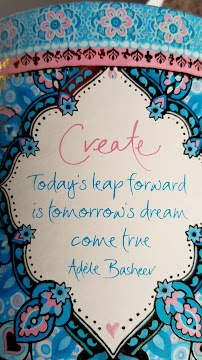 Create
Today's leap forward
is tomorrow's dream
come true
Adèle Basheer